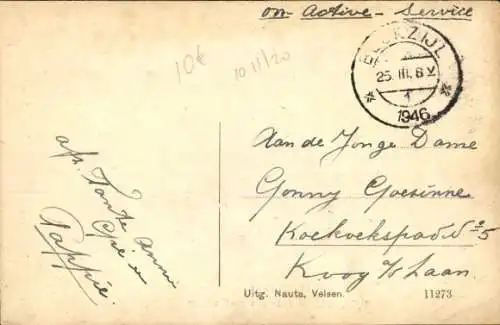 on - Active - Service
10€
10 11/20
BLOKZIJL
25.III.6 V
1
1946
afs. Tante Annie
en
Pappie.
Aan de Jonge Dame
Gonny Goesinne
Koekoekspad
Koog a/d Zaan.
Uitg. Nauta, Velsen.
11273